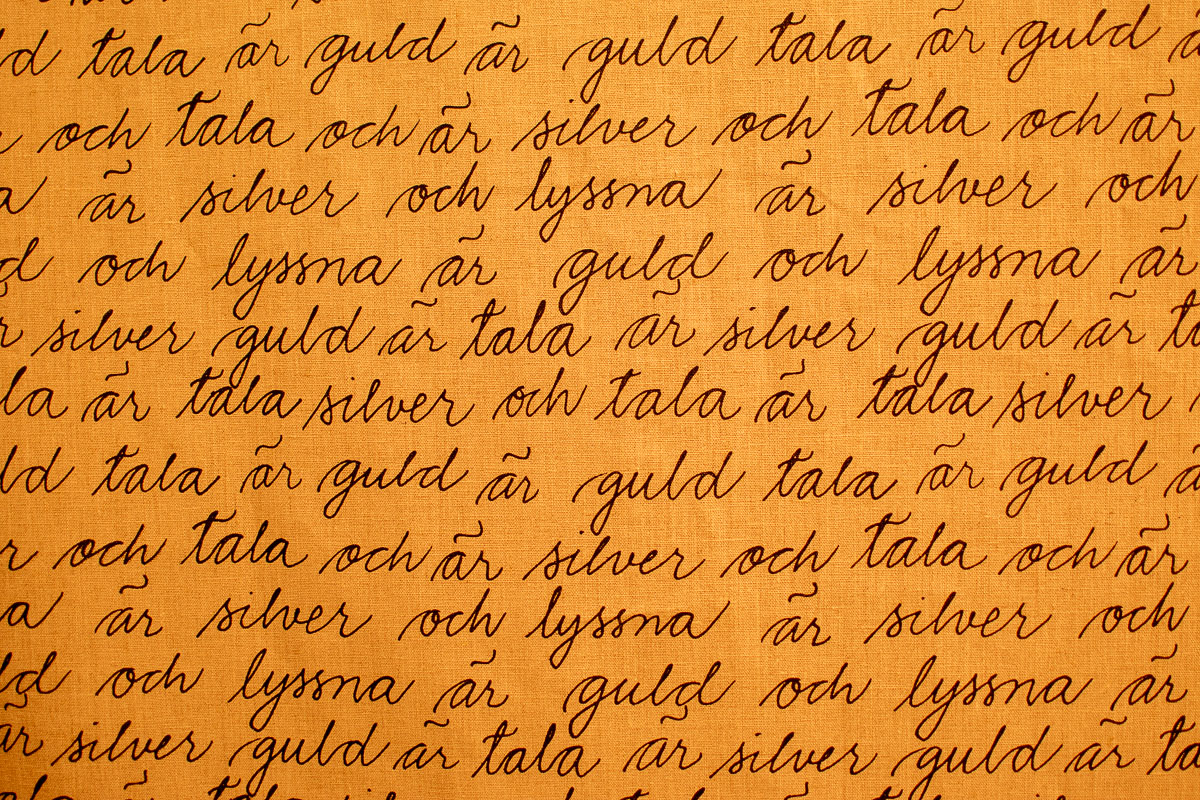 tala är guld är guld tala är guld
och tala och är silver och tala och är
är silver och lyssna är silver och
och lyssna är guld och lyssna är
silver guld är tala är silver guld är
är tala silver och tala är tala silver
tala är guld är guld tala är guld
och tala och är silver och tala och är
är silver och lyssna är silver och
och lyssna är guld och lyssna är
är silver guld är tala är silver guld är